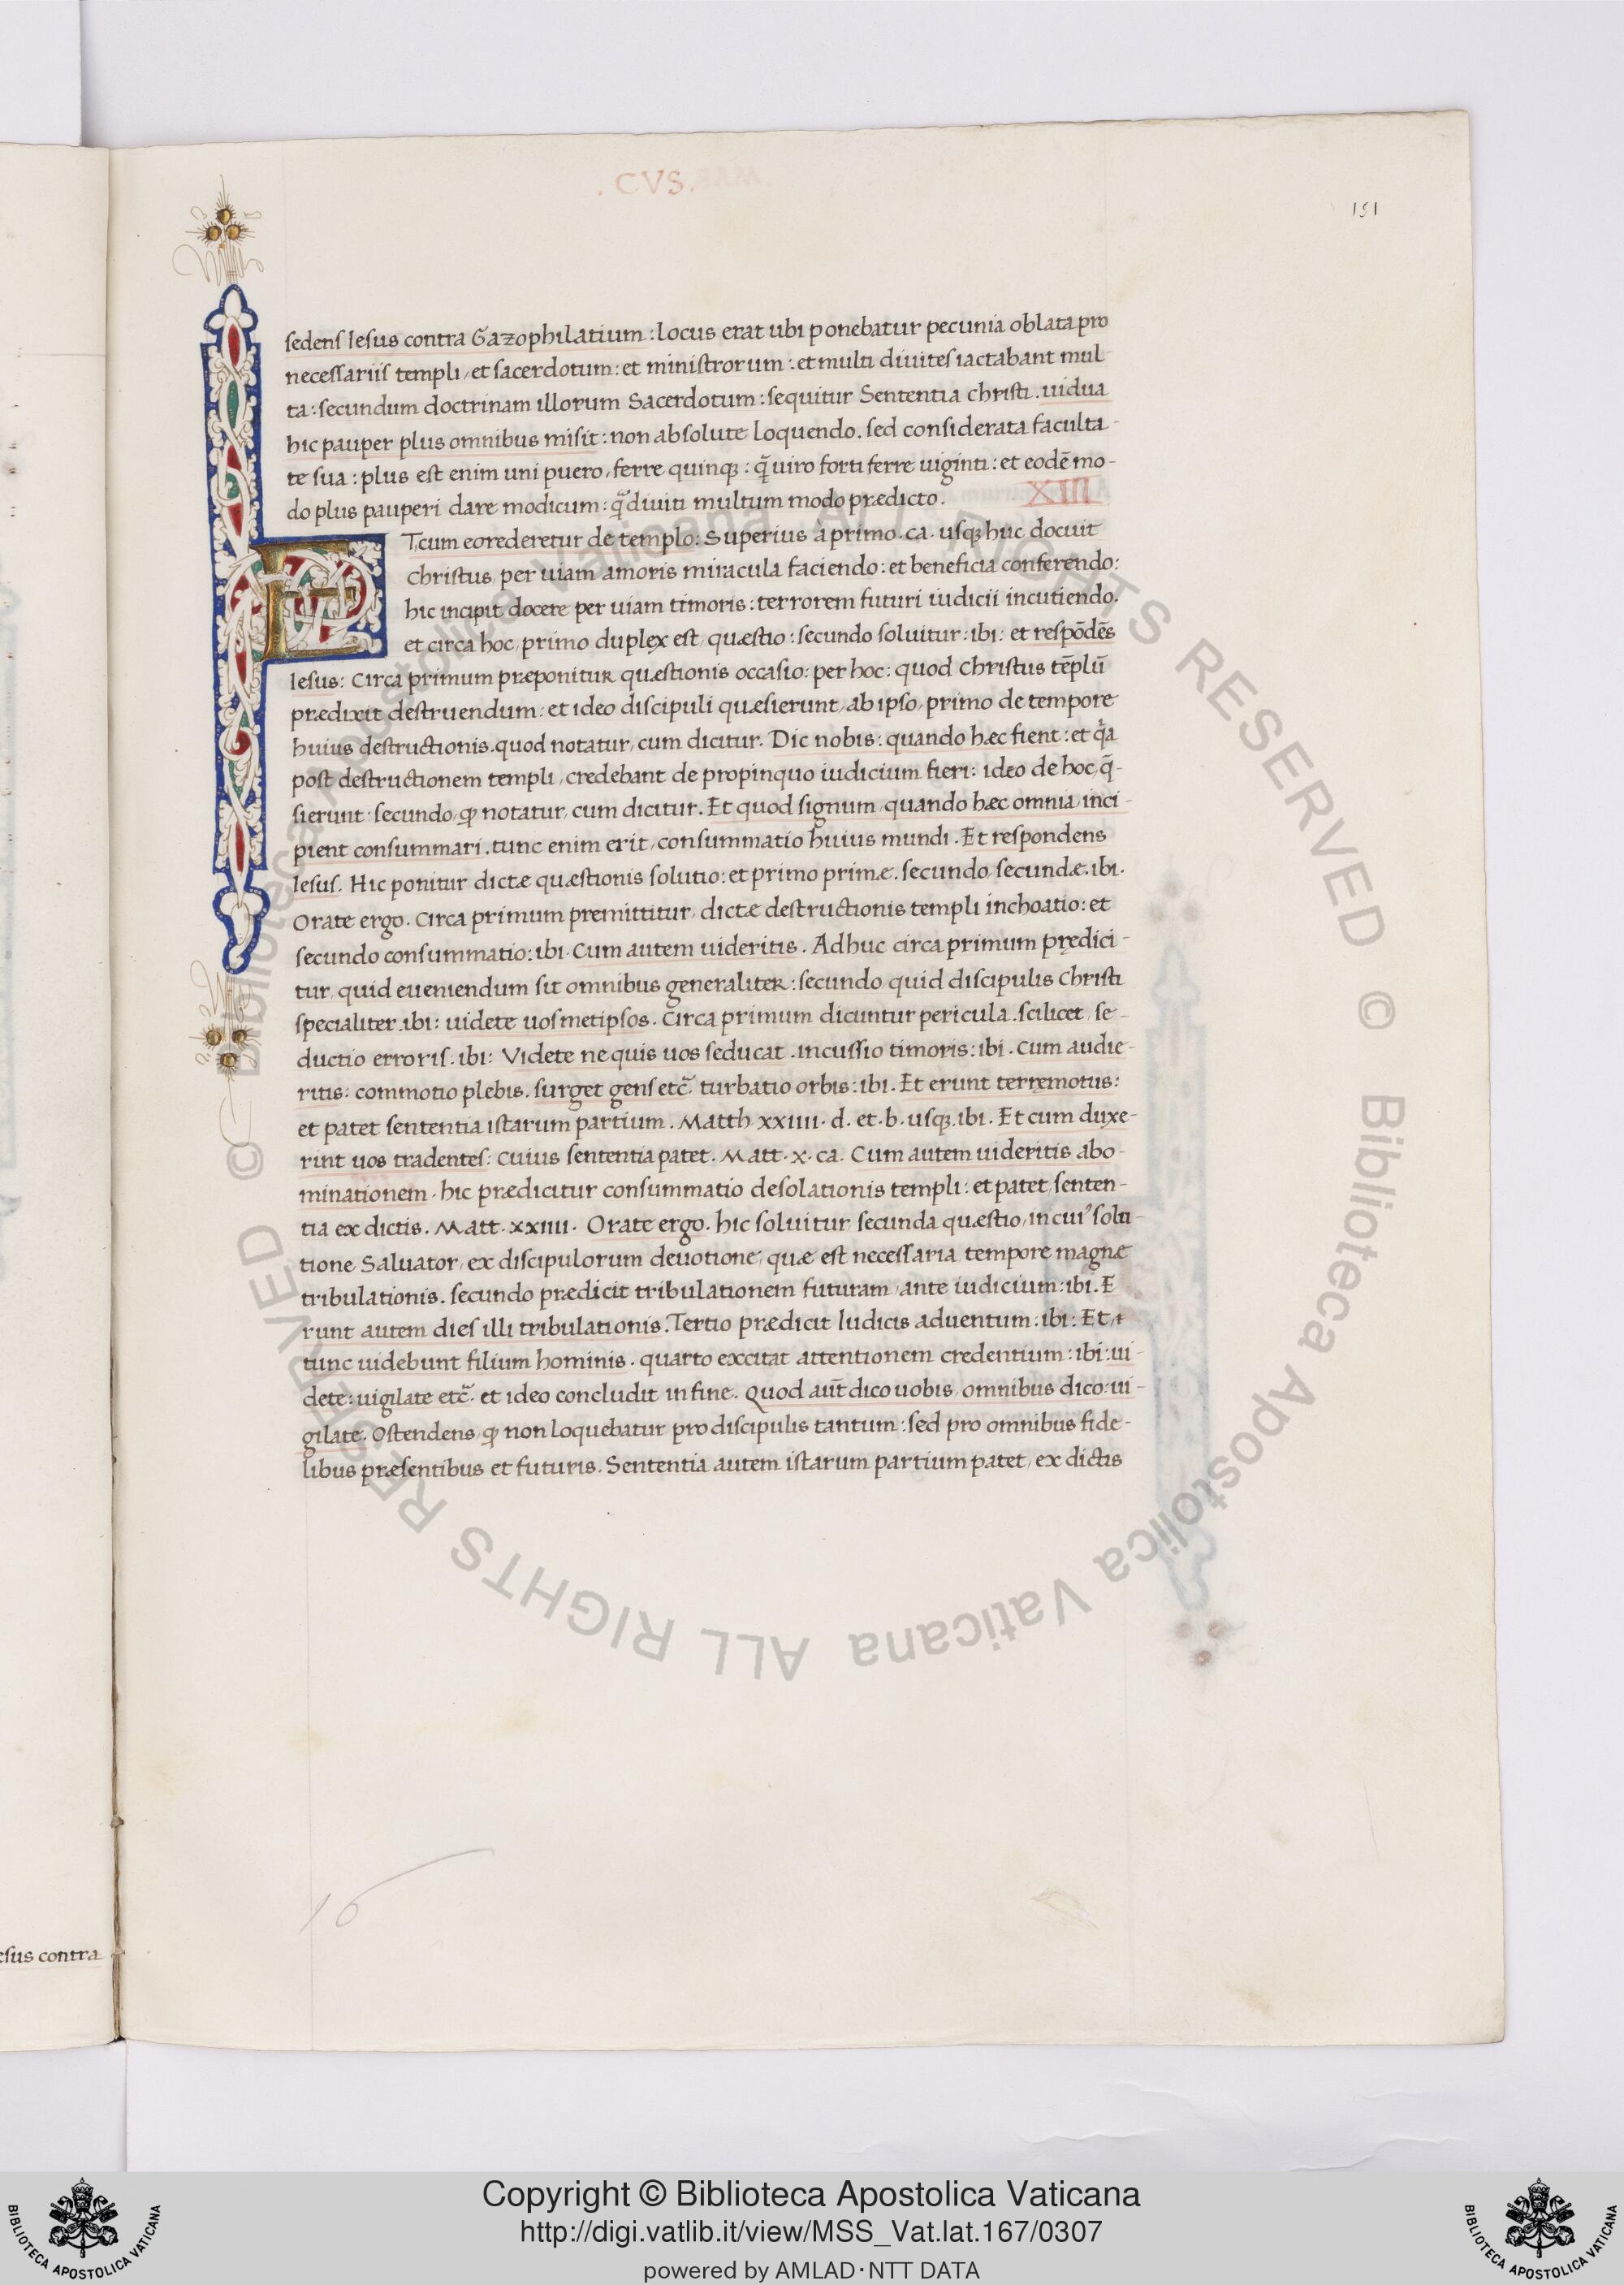 .CVS.
151
sedens Iesus contra Gazophilatium: locus erat ubi ponebatur pecunia oblata pro
necessariis templi, et sacerdotum: et ministrorum: et multi diuites iactabant mul
ta: secundum doctrinam illorum Sacerdotum: sequitur Sententia christi. uidua
hic pauper plus omnibus misit: non absolute loquendo. sed considerata faculta-
te sua: plus est enim uni puero, ferre quinq;: q̃ uiro forti ferre uiginti: et eodē mo-
do plus pauperi dare modicum: q̃ diuiti multum modo prædicto.
XIII
ET cum egrederetur de templo: Superius a primo. ca. usq; huc docuit
christus, per uiam amoris miracula faciendo: et beneficia conferendo:
hic incipit docere per uiam timoris: terrorem futuri iudicii incutiendo.
et circa hoc, primo duplex est, quæstio: secundo soluitur: ibi: et respōdēs
Iesus: Circa primum præponitur quæstionis occasio: per hoc: quod Christus tēplū
prædixit destruendum: et ideo discipuli quæsierunt, ab ipso, primo de tempore
huius destructionis. quod notatur, cum dicitur. Dic nobis: quando hæc fient: et q̇a
post destructionem templi, credebant de propinquo iudicium fieri: ideo de hoc, q̄-
sierunt: secundo, ꝙ notatur, cum dicitur. Et quod signum, quando hæc omnia, inci-
pient consummari. tunc enim erit, consummatio huius mundi. Et respondens
Iesus. Hic ponitur dictæ quæstionis solutio: et primo primæ. secundo, secundæ. ibi.
Orate ergo. Circa primum premittitur, dictæ destructionis templi inchoatio: et
secundo consummatio: ibi. Cum autem uideritis. Adhuc circa primum prędici-
tur, quid eueniendum sit omnibus generaliter: secundo quid discipulis Christi
specialiter. ibi: uidete uosmetipsos. Circa primum dicuntur pericula. scilicet, se-
ductio erroris: ibi: Videte ne quis uos seducat. incussio timoris: ibi. Cum audie-
ritis: commotio plebis. surget gens etc̃. turbatio orbis: ibi. Et erunt terręmotus:
et patet sententia istarum partium. Matth. xxiiii. d. et. b. usq; ibi. Et cum duxe-
rint uos tradentes: Cuius sententia patet. Matt. x. ca. Cum autem uideritis abo-
minationem. hic prædicitur consummatio desolationis templi: et patet, senten-
tia ex dictis. Matt. xxiiii. Orate ergo. hic soluitur secunda quæstio, in cui⁹ solu-
tione Saluator, ex discipulorum deuotione, quæ est necessaria tempore magnæ
tribulationis. secundo prædicit tribulationem futuram, ante iudicium: ibi. E
runt autem dies illi tribulationis. Tertio prædicit Iudicis aduentum: ibi: Et, t
tunc uidebunt filium hominis. quarto excitat attentionem credentium: ibi: ui-
dete: uigilate etc̃. et ideo concludit in fine. Quod aūt dico uobis, omnibus dico: ui-
gilate. Ostendens, ꝙ non loquebatur pro discipulis tantum: sed pro omnibus fide-
libus præsentibus et futuris. Sententia autem istarum partium patet, ex dictis
16
esus contra
© Biblioteca Apostolica Vaticana ALL RIGHTS RESERVED © Biblioteca Apostolica Vaticana ALL RIGHTS RESERVED
BIBLIOTECA APOSTOLICA VATICANA
Copyright © Biblioteca Apostolica Vaticana
http://digi.vatlib.it/view/MSS_Vat.lat.167/0307
powered by AMLAD·NTT DATA
BIBLIOTECA APOSTOLICA VATICANA